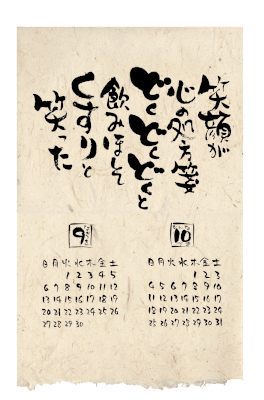 笑顔が
心の処方箋
どくどくどくと
飲みほして
くすりと
笑った
9
日 月 火 水 木 金 土
1 2 3 4 5
6 7 8 9 10 11 12
13 14 15 16 17 18 19
20 21 22 23 24 25 26
27 28 29 30
10
日 月 火 水 木 金 土
1 2 3
4 5 6 7 8 9 10
11 12 13 14 15 16 17
18 19 20 21 22 23 24
25 26 27 28 29 30 31